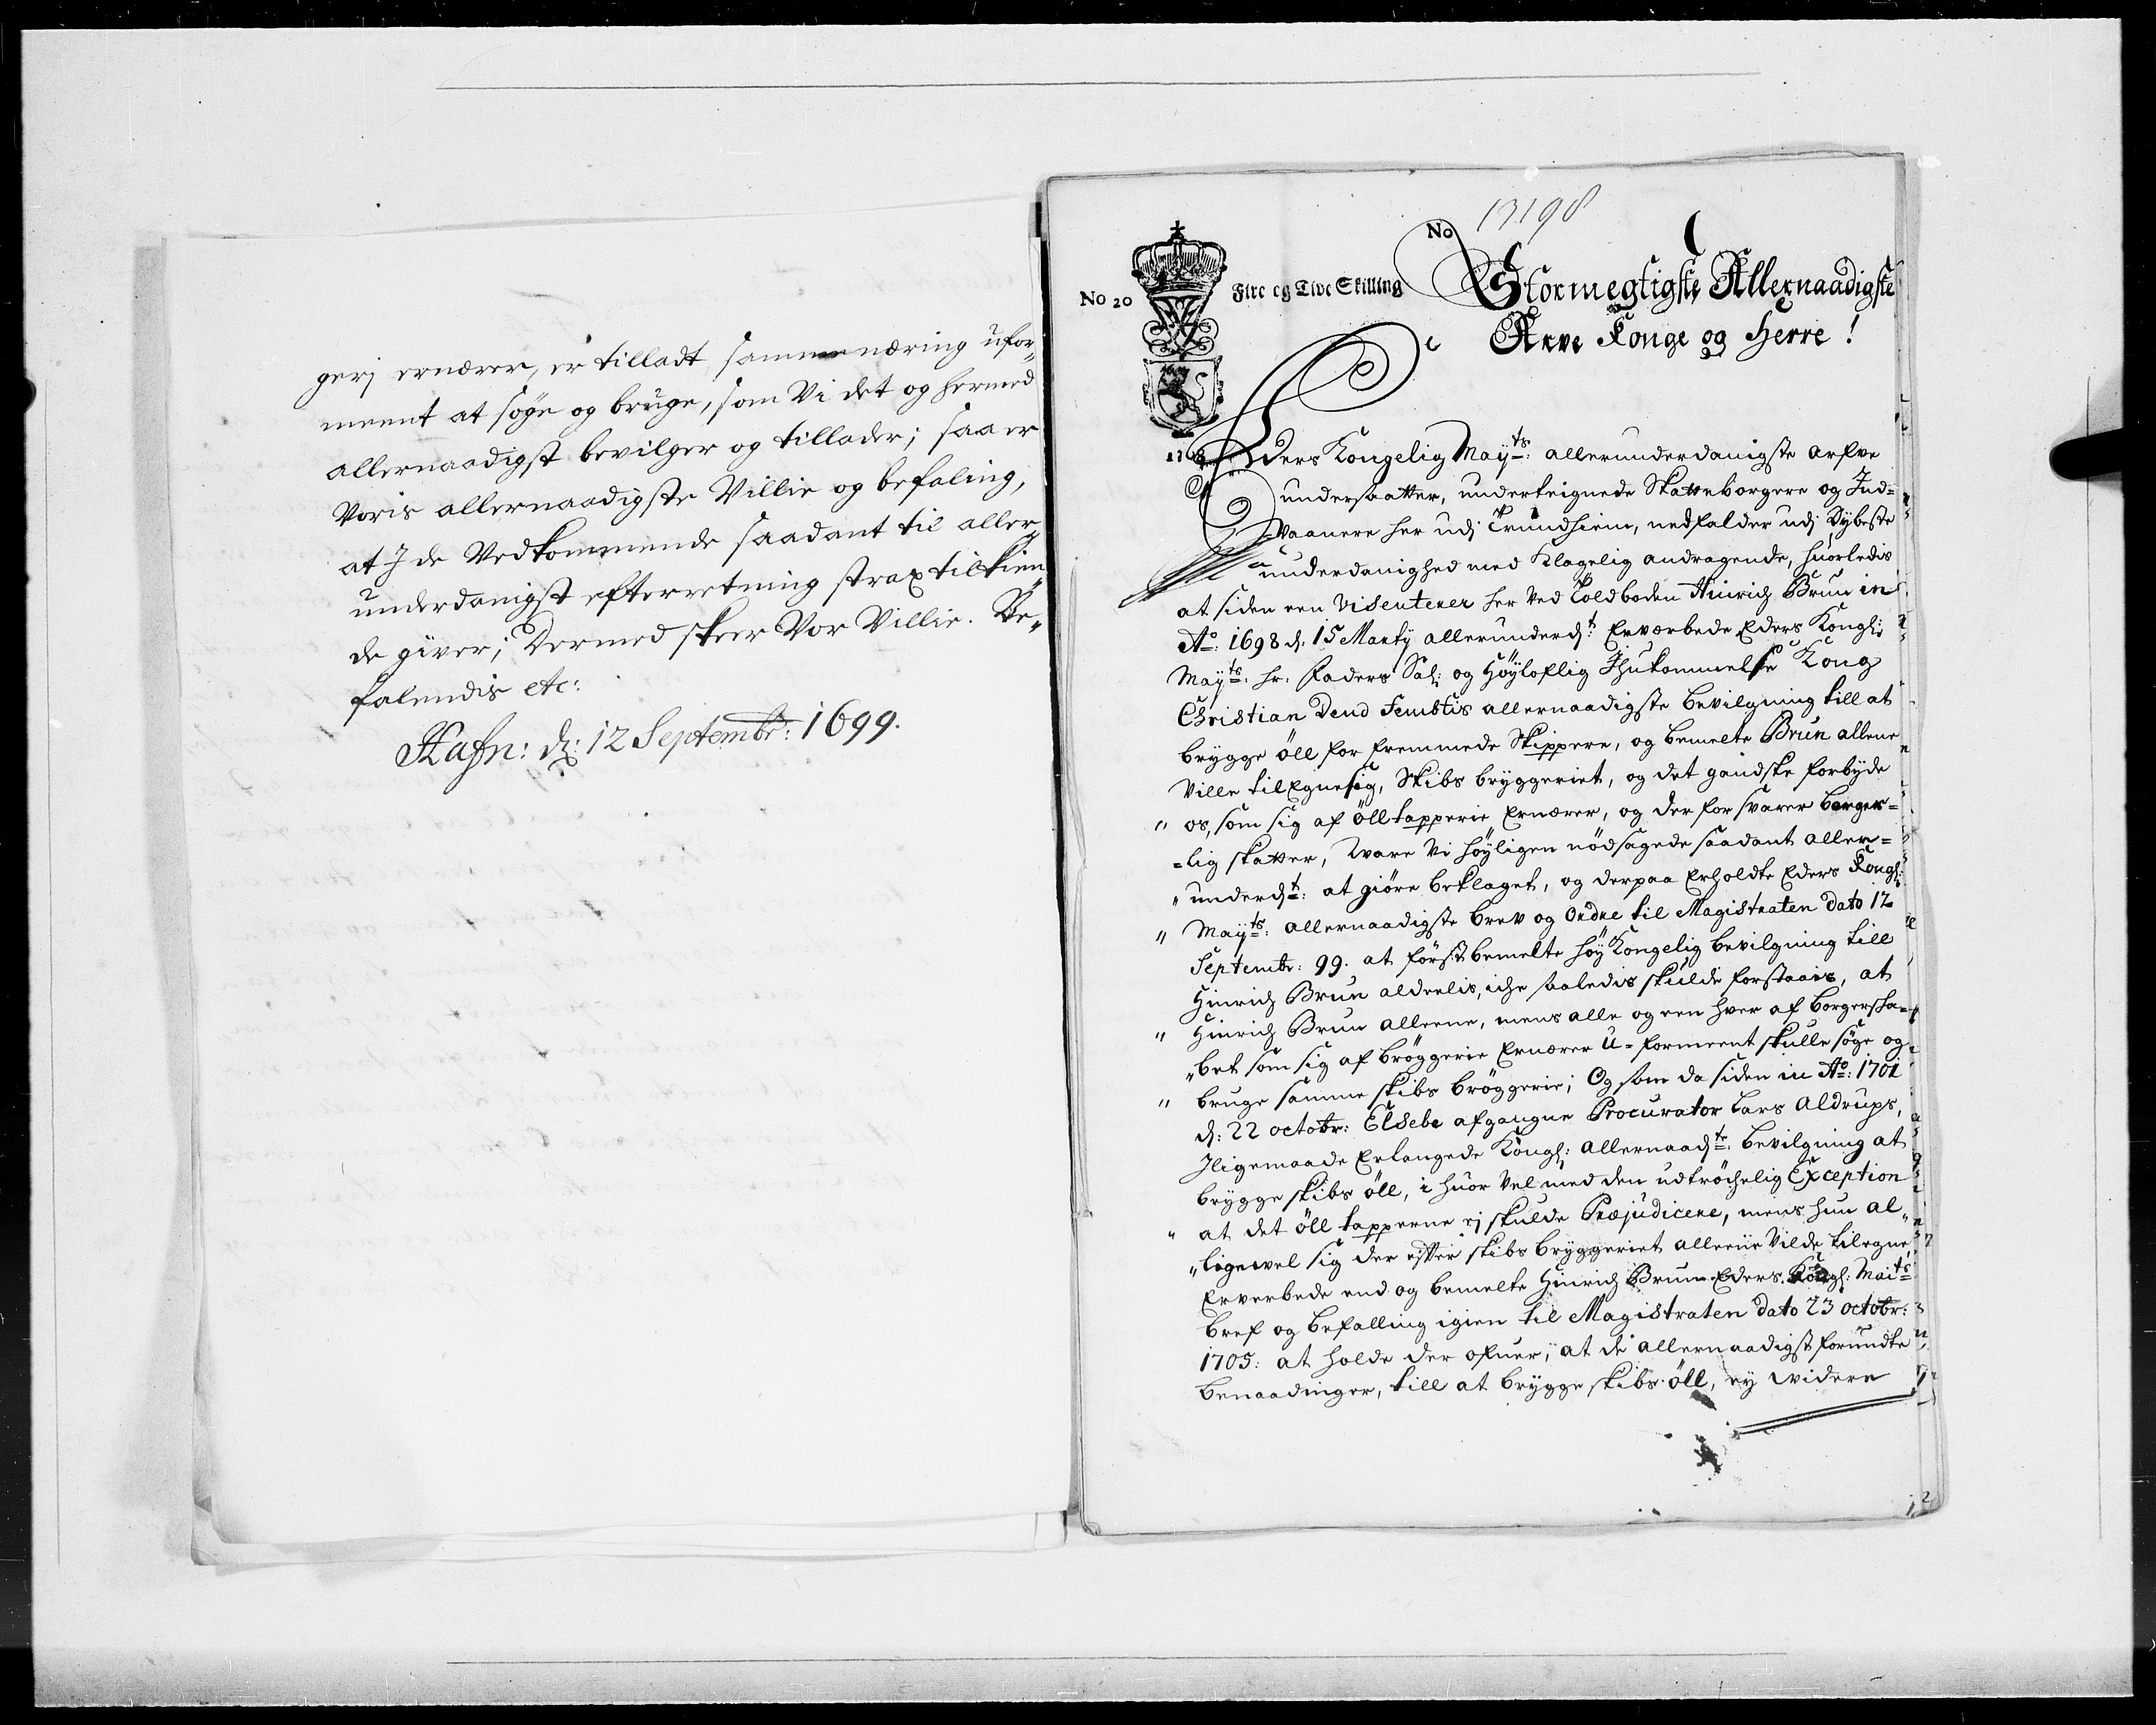 gerj ernærer, er tilladt samme næring ufor„
ment at søge og bruge, som Vi det og hermed
allernaadigst bevilger og tillader; saa er
Voris allernaadigste Villie og befaling,
at I de Vedkommende saadant til aller„
underdanigst efterretning strax tilkien„
de giver; Dermed skeer Vor Villie. Be„
falendis etc:
Hafn: d: 12 Septembr: 1699.
13198
No
No 20
Fire og Tive Skilling
Stormegtigste Allernaadigste
Arve Konge og Herre!
Eders Kongelig Mayts: allerunderdanigste arfve
undersaatter, underteignede Skatteborgere og Ind=
Vaanere her udj Trundhiem, nedfalder udj Dybeste
underdanighed med Klagelig andragende, huorledis
at siden een Visenterer her Ved Toldboden Hinrich Brun in
Ao: 1698 d: 15 Marty allerunderdt: Erværbede Eders Kongl:
Mayts: hr: Faders Sal: og Høyloflig Ihukommelse Kong
Christian Dend Femtis allernaadigste bevilgning till at
brygge öll for fremmede Skippere, og bemelte Brun allene
Ville tilEgne sig, Skibs bryggeriet, og det gandske forbyde
" os, som sig af ölltapperie Ernærer, og der for svarer borger=
=lig skatter, Ware Vi höyligen nödsagede saadant aller=
" underdt: at giöre beklaget, og derpaa Erholdte Eders Kongl:
" Mayts: allernaadigste brev og Ordre til Magistraten dato 12
Septembr: 99. at förstbemelte höy Kongelig bevilgning till
Hinrich Brun aldeelis, iche saaledis skulde forstaais, at
" Hinrich Brun alleene, mens alle og een hver af borgerska=
" bet som sig af bröggerie Ernærer U=formeent skulle söge og
" bruge samme skibs bröggerie; Og som da siden in Ao: 1701
d: 22 octobr: Elsebe afgangne Procurator Lars Aldrups,
Iligemaade Erlangede Kongl: allernaadte: bevilgning at
brygge skibs öll, i huor Vel med den udtröchelig Exception
" at det öll tapperne ej skulde Præjudicere, mens hun al„
" ligevel sig der efter skibs bryggeriet alleene Vilde tilegne,
Erverbede end og bemelte Hinrich Brun Eders Kongl: Maits
bref og befalling igien til Magistraten dato 23 octobr:
1705: at holde der ofuer, at de allernaadigst forundte
benaadinger, till at brygge skibs öll, ey widere